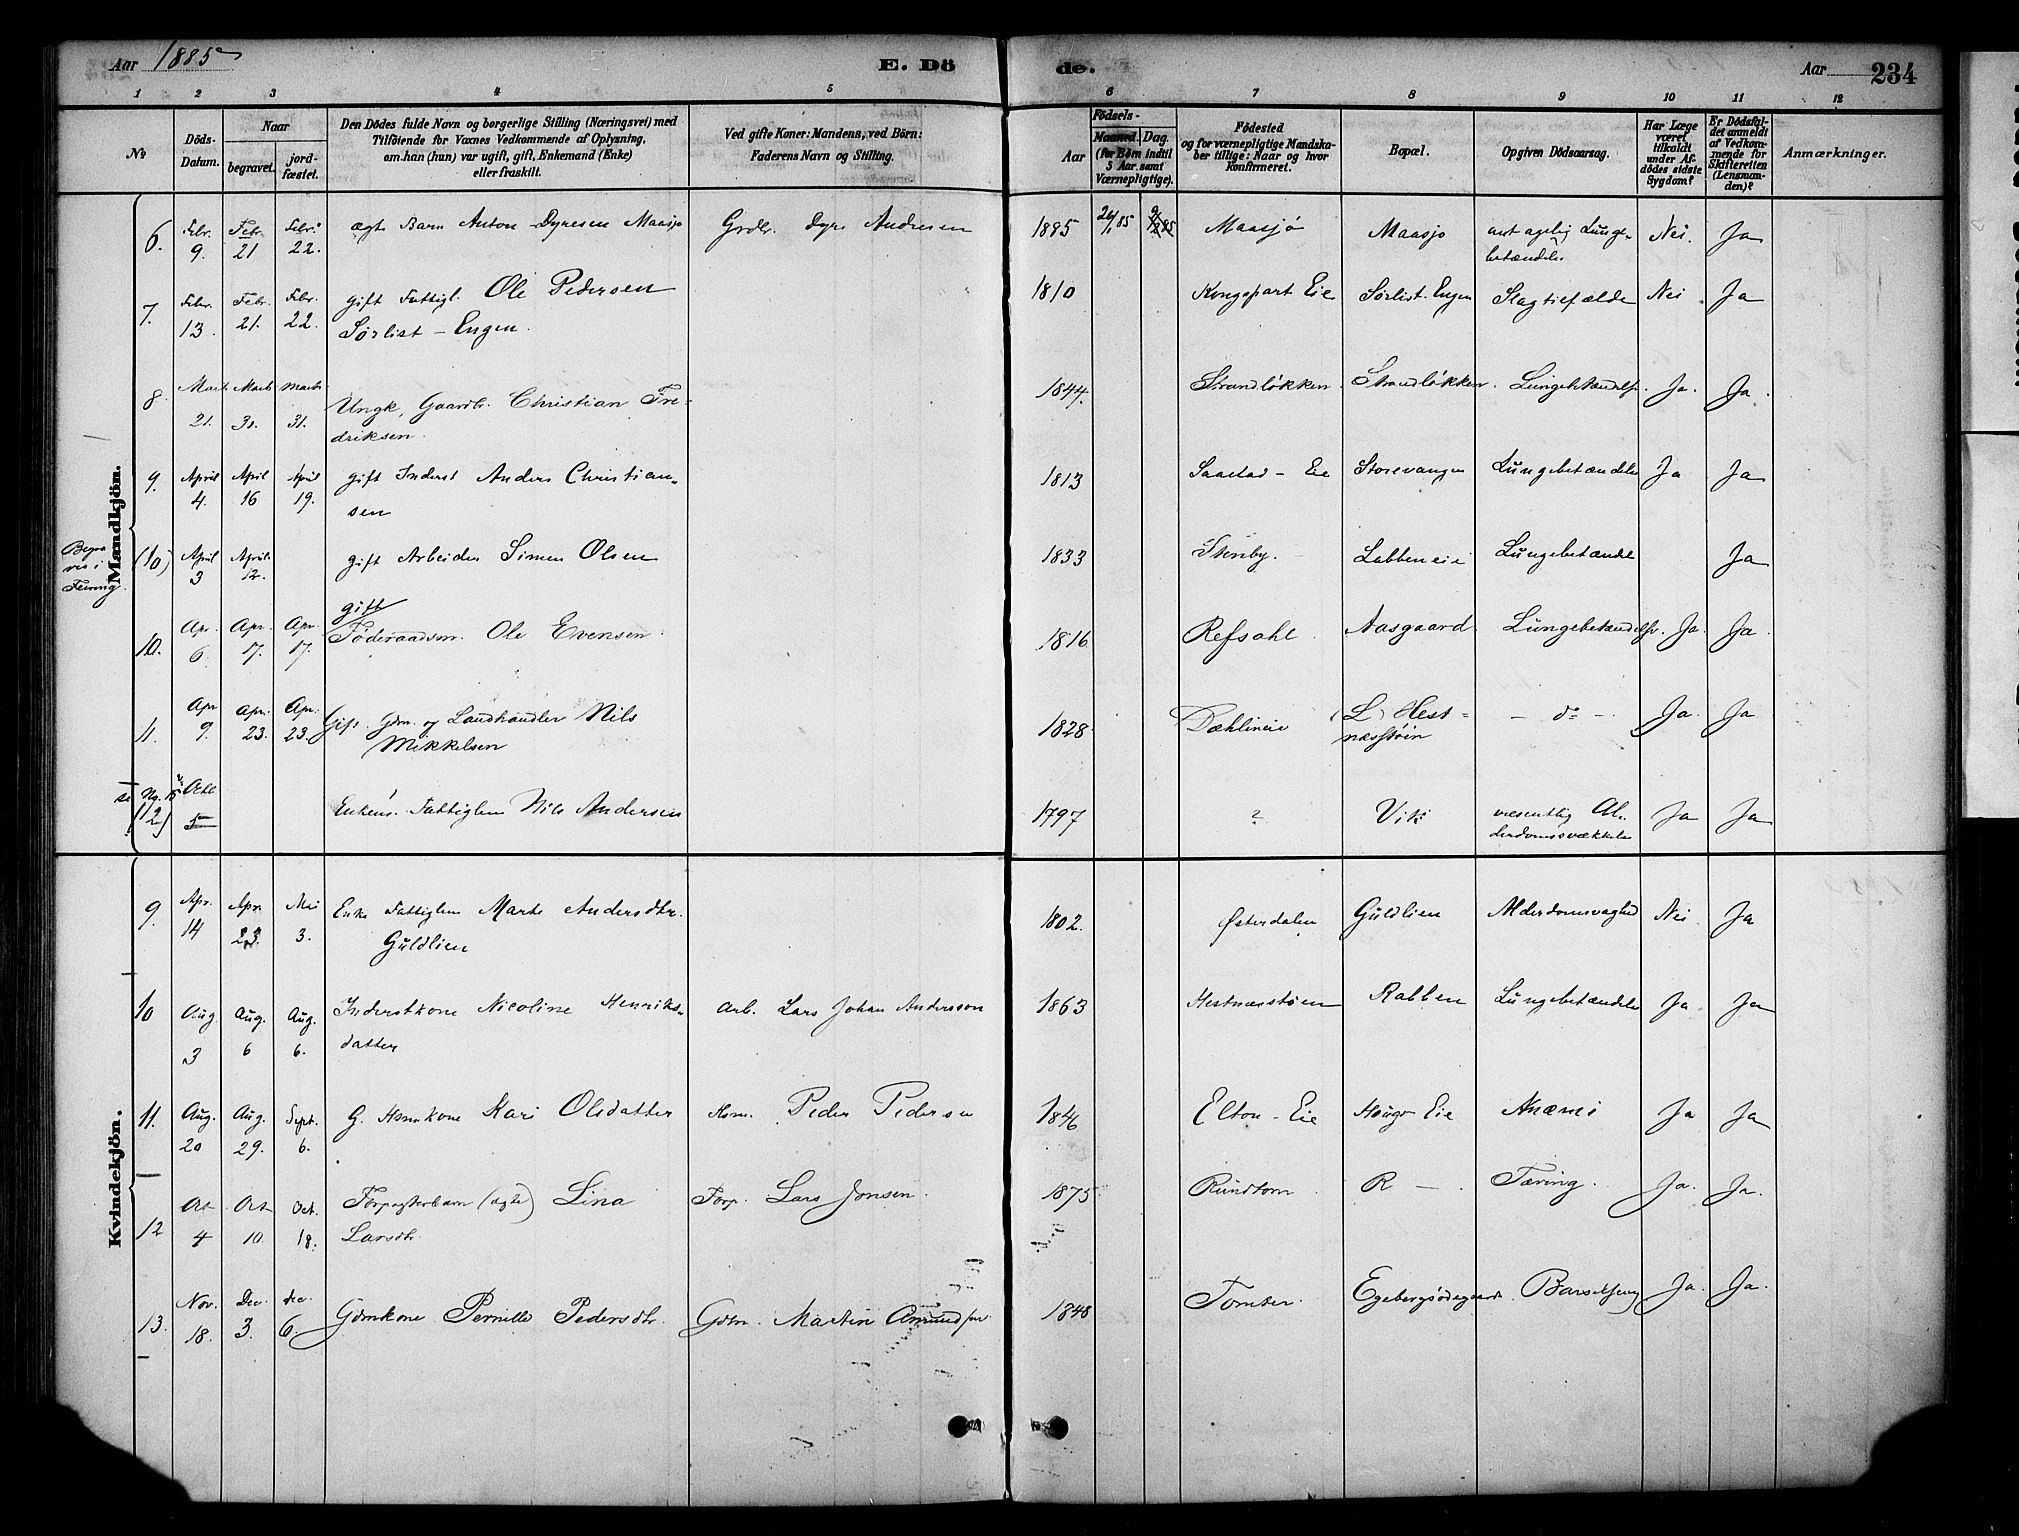 Aar 1885
E. Döde.
Aar 234
1 2 3 4 5 6 7 8 9 10 11 12
No
Döds-Datum.
Naar
begravet.
jord-fæstet.
Den Dödes fulde Navn og borgerlige Stilling (Næringsvei) med
Tilföiende for Voxnes Vedkommende af Oplysning,
om han (hun) var ugift, gift, Enkemand (Enke)
eller fraskilt.
Ved gifte Koner: Mandens, ved Börn:
Faderens Navn og Stilling.
Födsels-
Aar
Maaned. Dag.
(for Börn indtil
5 Aar samt
Værnepligtige).
Födested
og for værnepligtige Mandska-
ber tillige: Naar og hvor
Konfirmeret.
Bopæl.
Opgiven Dödsaarsag.
Har Læge
været
tilkaldt
under Af-
dödes sidste
Sygdom?
Er Dödsfal-
det anmeldt
af Vedkom-
mende for
Skifteretten
(Lensman-
den)?
Anmærkninger.
Mandkjön.
6. Febr. 9. Febr. 21 Febr. 22. ægte Barn Anton Dyresen Maasjø Grdbr. Dyre Andresen 1885 Maasjø Maasjø Lunge-
betændelse Nei. Ja
7. Febr. 13. Febr. 21. Febr. 22. gift Fattigl. Ole Pedersen 1810 Kongspart Eie Sørlist-Engen Slagtilfælde Nei Ja
Sørlist-Engen.
8. Marts 21. Marts 31. Marts 31. Ungk. Gaardbr. Christian Fre-
driksen. 1844. Strandløkken Strandløkken. Lungebetændelse. Ja. Ja.
9. April 4. April 16 April 19. gift Inderst Anders Christian-
sen 1813 Saastad-Eie Storevangen Lungebetændelse Ja Ja
Begra
ves i
Feiring
(10) April 3 April 12. gift Arbeider Simen Olsen 1833 Stenby. Labbeneie Lungebetændelse Ja
10. Apr. 6. Apr. 17. Apr. 17. gift
Føderaadsm. Ole Evensen. 1816 Refsahl Aasgaard. Lungebetændelse. Ja. Ja.
11. Apr. 9. Apr. 23. Apr. 23. Gift. Gdm. og Landhandler Nils
Mikkelsen 1828 Dæhlineie (L) Hest-
næsstøin - do - Ja. Ja
(12) 5 Enkem. Fattiglem Nils Andersen 1797 ? Vik væsentlig Al-
derdomssvækkelse Ja Ja
Kvindekjön.
9. Apr. 14 Apr. 23. Mai 3. Enke Fattiglem Marte Andersdtr.
Guldlien 1802. Østerdalen Guldlien Alderdomsvaghed Nei Ja
10 Aug. 3 Aug. 6 Aug. 6. Inderstkone Nicoline Henriks-
datter Arb. Lars Johan Andersson 1863 Hestnæsstøen Rabben Lungebetændelse Ja Ja
11. Aug. 20 Aug. 29. Sept. 6. G. Hsmkone Kari Olsdatter Hsm. Peder Pedersen 1846 Elton-Eie Houge Eie Anæmi Ja Ja
12 Oct 4 Oct 10. Oct. 18. Forpagterbarn (ægte) Lina
Larsdtr. Forp. Lars Jonsen. 1875 Rundtom R - Tæring. Ja. Ja.
13. Nov. 18. Dec. 3. Dec. 6. Gdmkone Pernille Pedersdtr. Gdm. Martin Amundsen 1848 Tomter. Egebergsødegaard. Barselseng Ja. Ja.